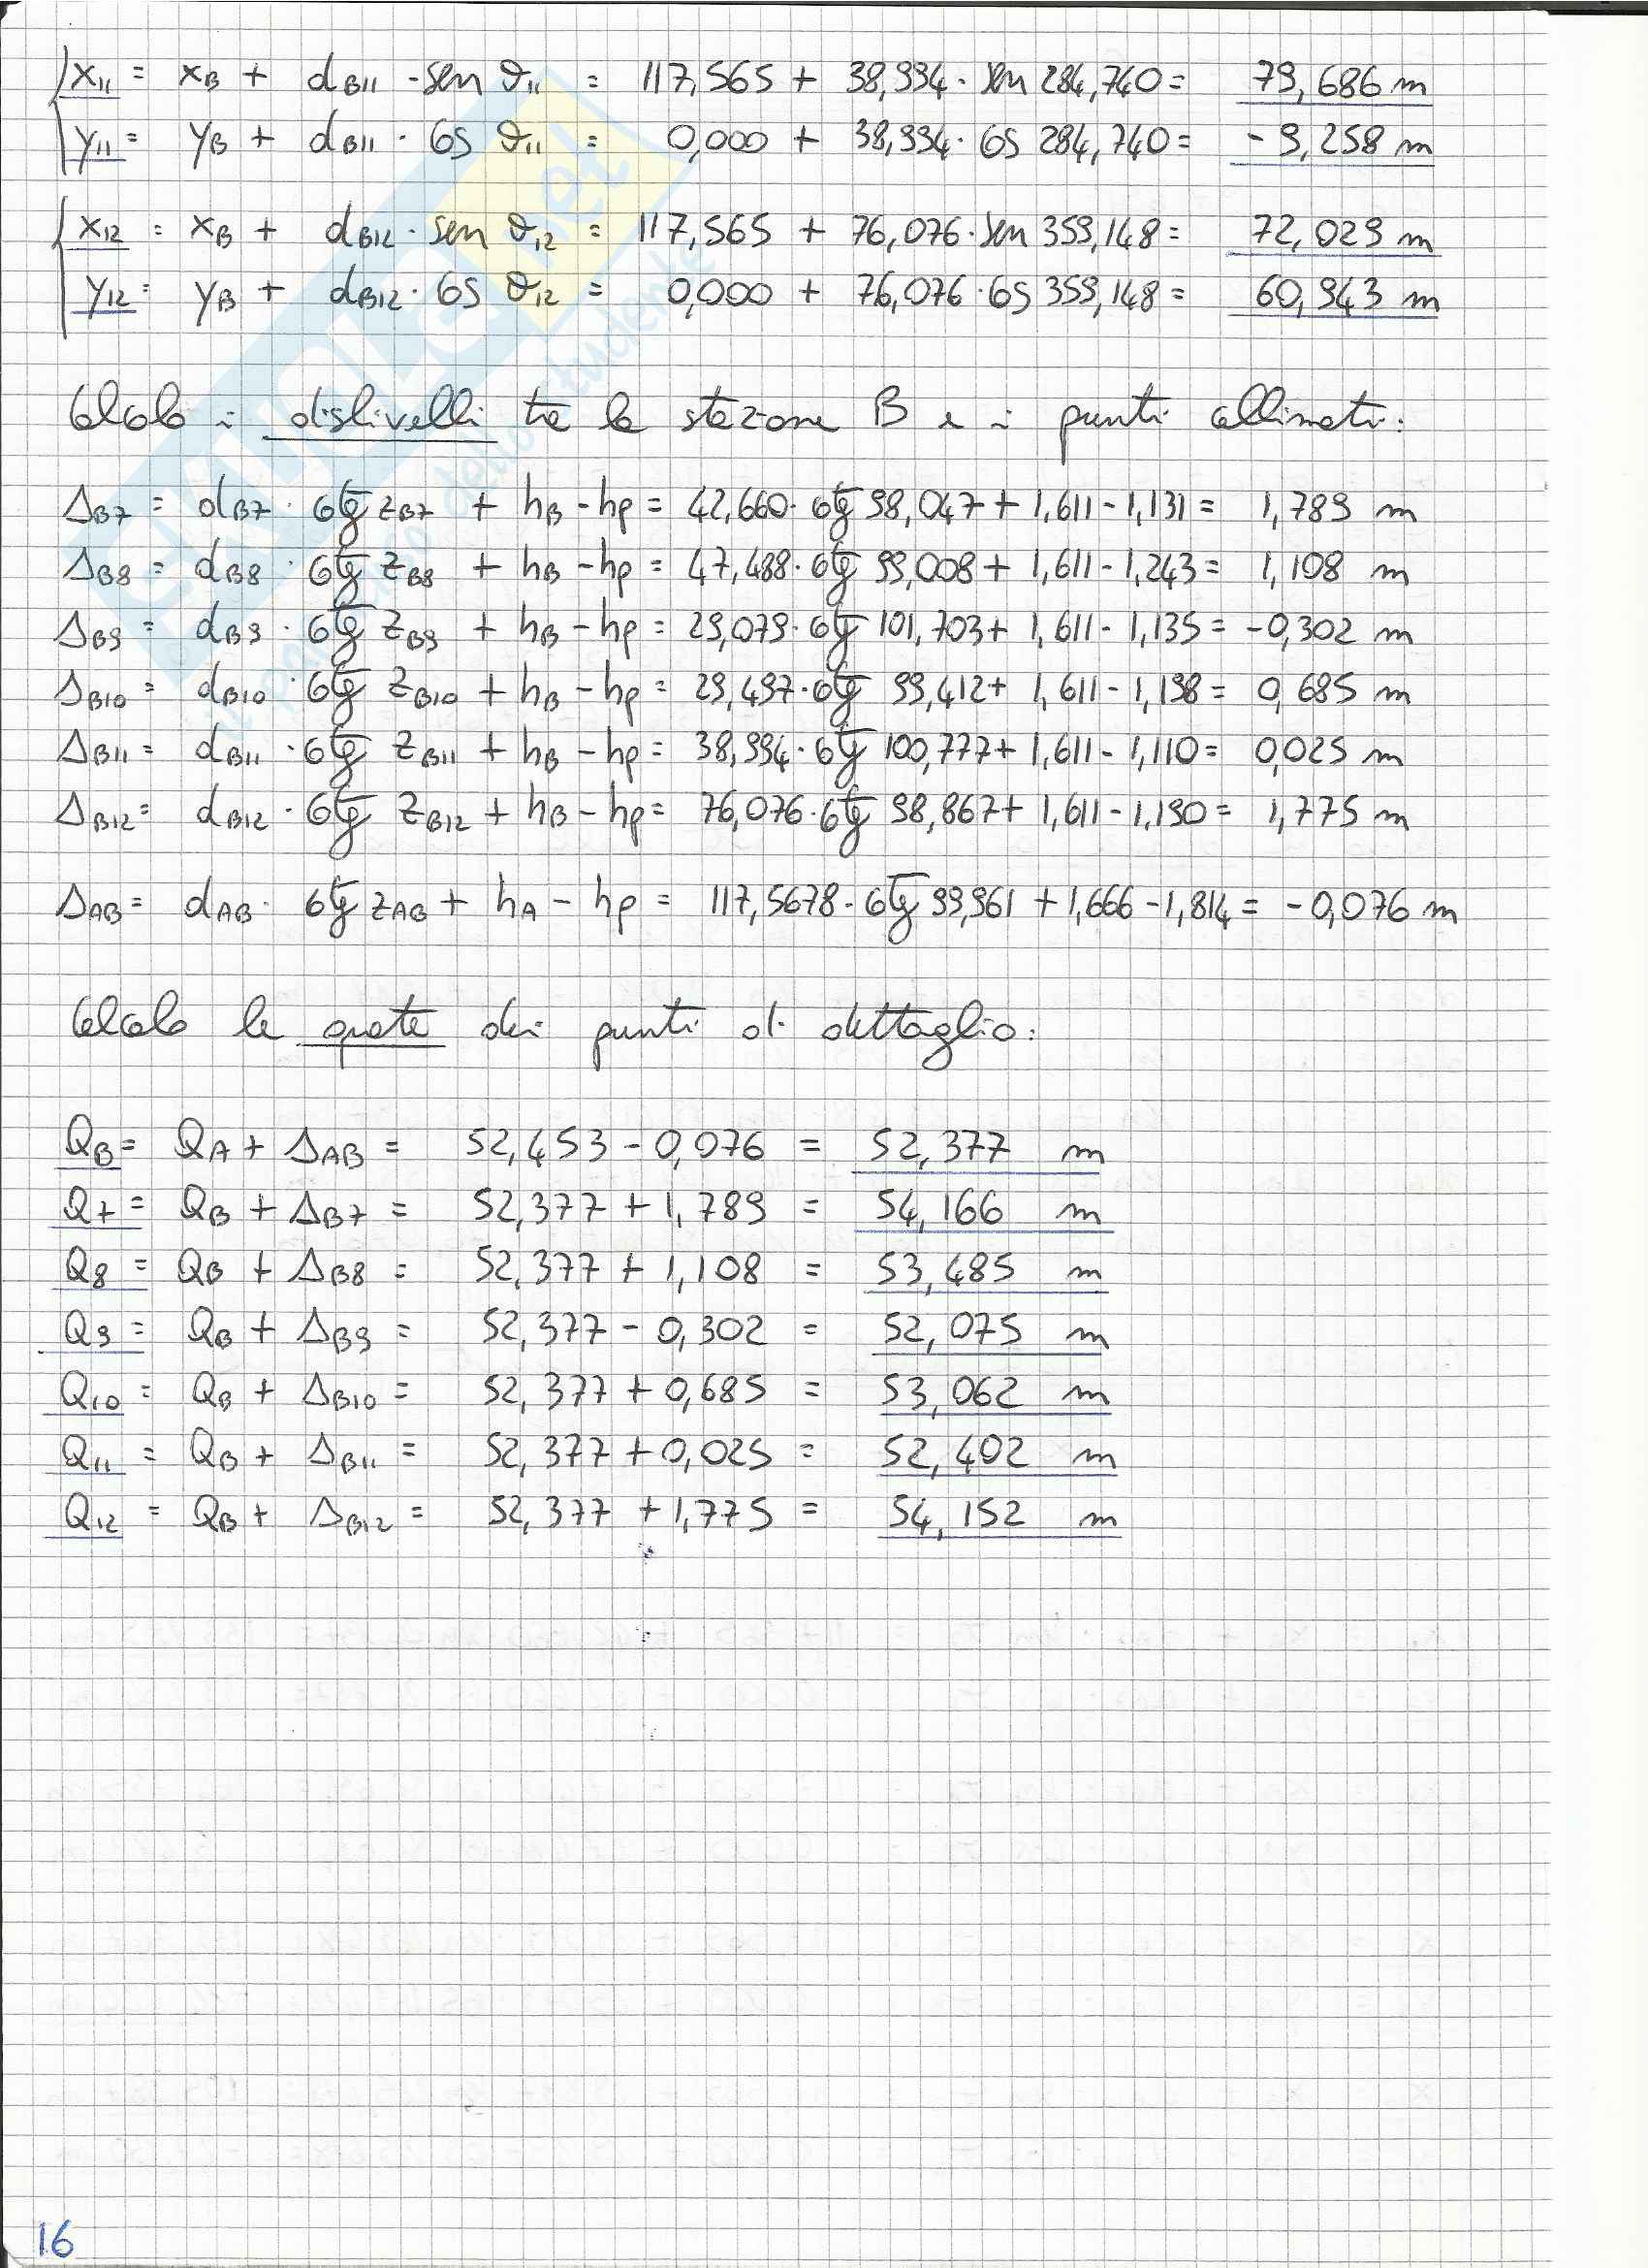 x₁₁ = x_B + d_B11 · sen ϑ₁₁ = 117,565 + 38,994 · sen 284,740 = 79,686 m
y₁₁ = y_B + d_B11 · cos ϑ₁₁ = 0,000 + 38,994 · cos 284,740 = -9,258 m
x₁₂ = x_B + d_B12 · sen ϑ₁₂ = 117,565 + 76,076 · sen 359,148 = 72,029 m
y₁₂ = y_B + d_B12 · cos ϑ₁₂ = 0,000 + 76,076 · cos 359,148 = 60,943 m
Calcolo i dislivelli tra la stazione B e i punti collimati:
Δ_B7 = d_B7 · ctg z_B7 + h_B - h_p = 42,660 · ctg 98,047 + 1,611 - 1,131 = 1,789 m
Δ_B8 = d_B8 · ctg z_B8 + h_B - h_p = 47,488 · ctg 99,008 + 1,611 - 1,243 = 1,108 m
Δ_B9 = d_B9 · ctg z_B9 + h_B - h_p = 29,079 · ctg 101,703 + 1,611 - 1,135 = -0,302 m
Δ_B10 = d_B10 · ctg z_B10 + h_B - h_p = 29,497 · ctg 99,412 + 1,611 - 1,198 = 0,685 m
Δ_B11 = d_B11 · ctg z_B11 + h_B - h_p = 38,994 · ctg 100,777 + 1,611 - 1,110 = 0,025 m
Δ_B12 = d_B12 · ctg z_B12 + h_B - h_p = 76,076 · ctg 98,867 + 1,611 - 1,190 = 1,775 m
Δ_AB = d_AB · ctg z_AB + h_A - h_p = 117,5678 · ctg 99,961 + 1,666 - 1,814 = -0,076 m
Calcolo le quote dei punti di dettaglio:
Q_B = Q_A + Δ_AB = 52,453 - 0,076 = 52,377 m
Q₇ = Q_B + Δ_B7 = 52,377 + 1,789 = 54,166 m
Q₈ = Q_B + Δ_B8 = 52,377 + 1,108 = 53,485 m
Q₉ = Q_B + Δ_B9 = 52,377 - 0,302 = 52,075 m
Q₁₀ = Q_B + Δ_B10 = 52,377 + 0,685 = 53,062 m
Q₁₁ = Q_B + Δ_B11 = 52,377 + 0,025 = 52,402 m
Q₁₂ = Q_B + Δ_B12 = 52,377 + 1,775 = 54,152 m
16